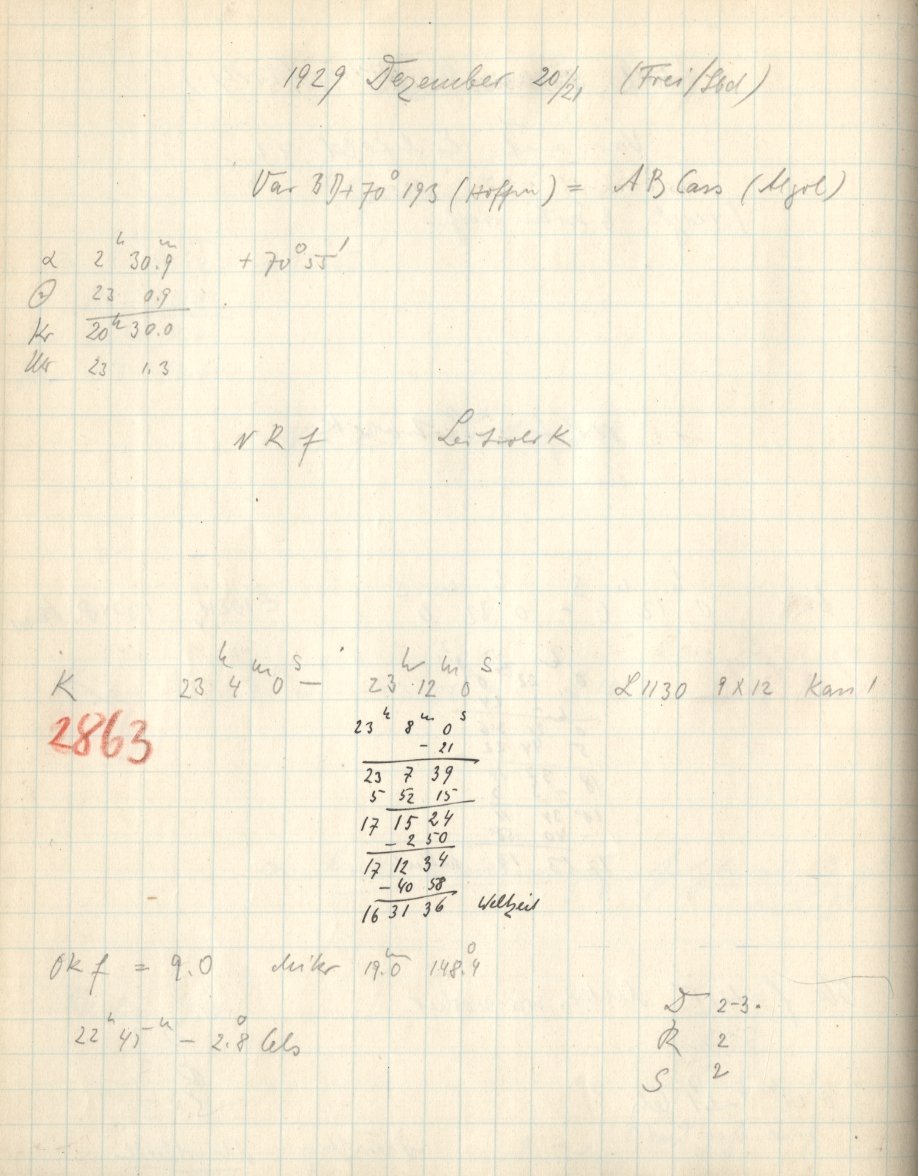 1929 Dezember 20/21 (Frei/Sbd)
Var BD+70° 193 (Hoffm) = AB Cass (Algol)
α 2ʰ 30.ᵐ9 + 70° 55'
☉ 23 0.9
Kr 20ʰ 30.0
Uhr 23 1.3
N R f
K 23ʰ 4ᵐ 0ˢ — 23ʰ 12ᵐ 0ˢ L 1130 9 X 12
2863
23ʰ 8ᵐ 0ˢ
- 21
23 7 39
5 52 15
17 15 24
- 2 50
17 12 34
- 40 58
16 31 36 Weltzeit
OK f = 9.0 Mikr 19.0 148.°4
22ʰ 45ᵐ — 2.°8 Cels
D 2-3.
R 2
S 2